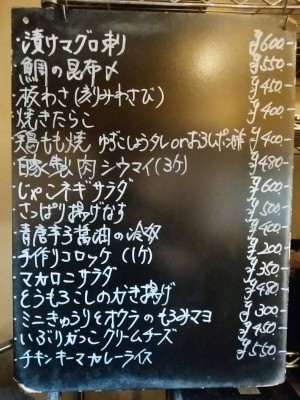 ・漬けマグロ刺 ¥600
・鯛の昆布〆 ¥550
・板わさ(刻みわさび) ¥450
・焼きたらこ ¥400
・鶏もも焼 ゆずこしょうタレorおろしポン酢 ¥400
・自家製肉シウマイ(3ヶ) ¥480
・じゃこネギサラダ ¥600
・さっぱり揚げなす ¥500
・青唐辛子醤油の冷奴 ¥400
・手作りコロッケ(1ヶ) ¥200
・マカロニサラダ ¥350
・とうもろこしのかき揚げ ¥480
・ミニきゅうりとオクラのもろみマヨ ¥300
・いぶりがっこクリームチーズ ¥450
・チキンキーマカレーライス ¥550